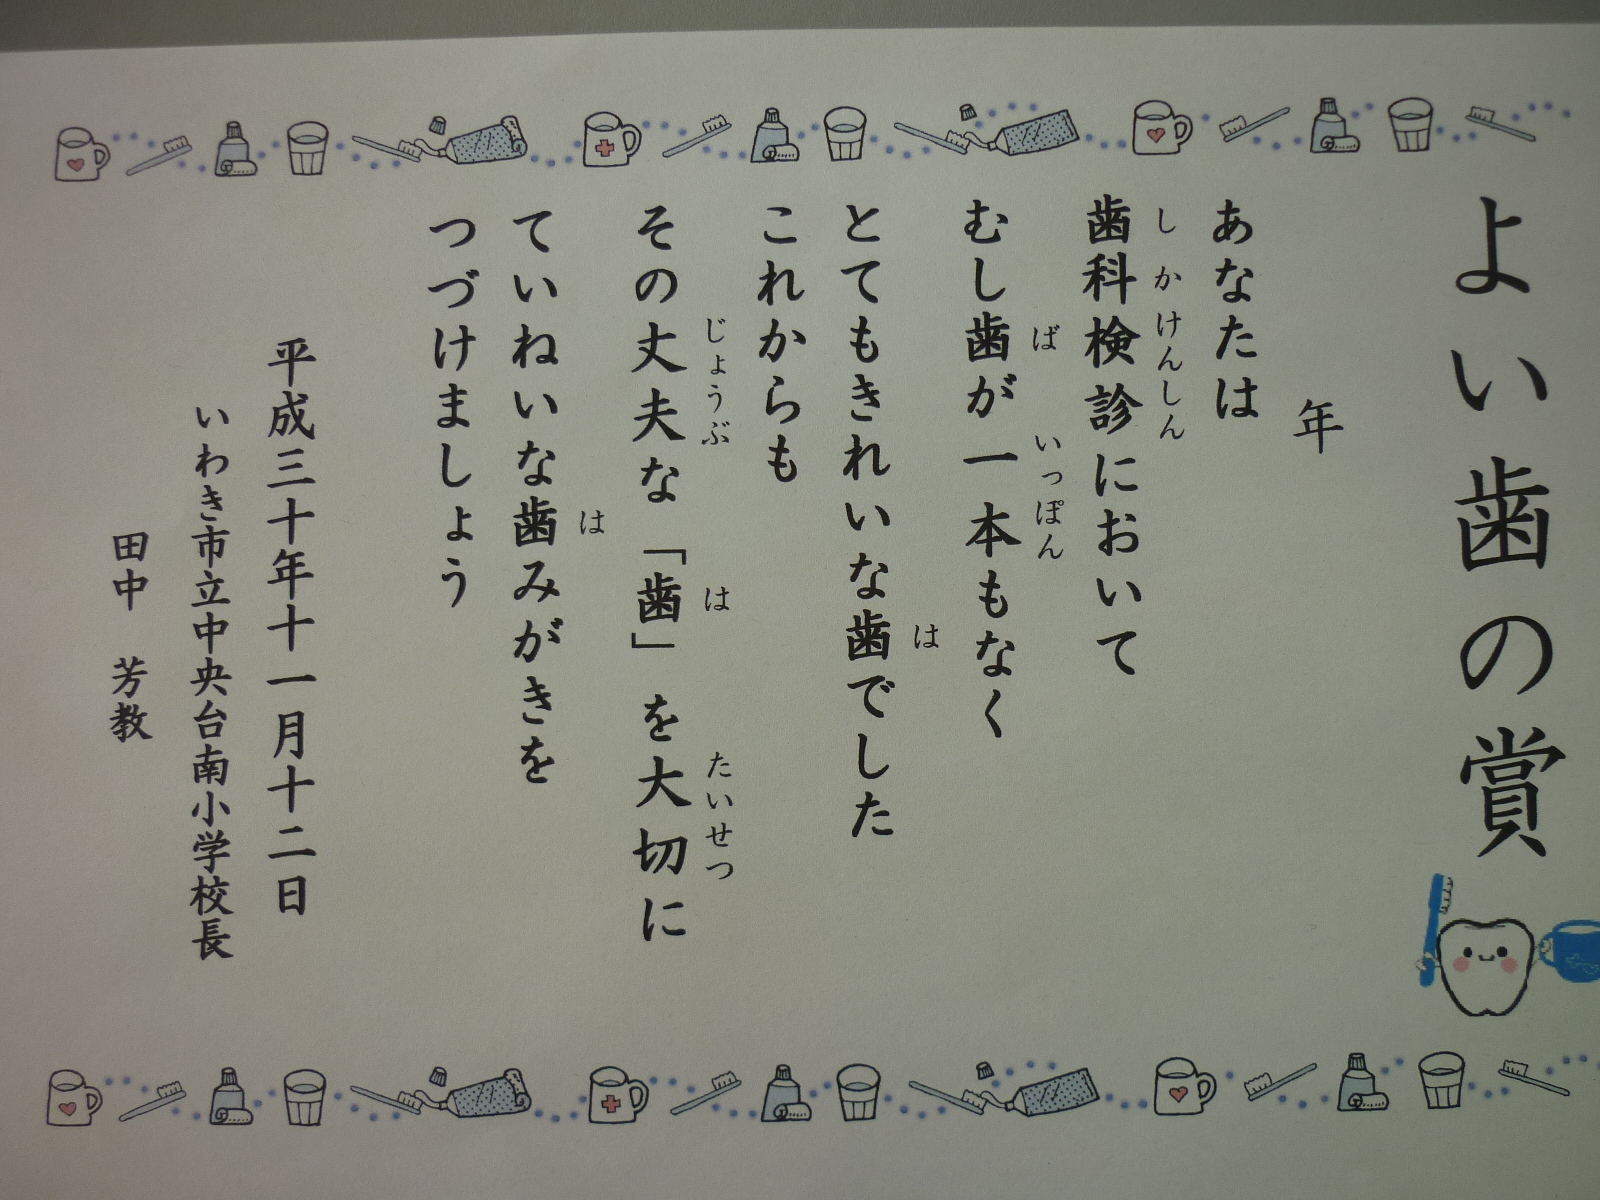 よい歯の賞
年
あなたは
歯科検診において
しかけんしん
むし歯が一本もなく
ば いっぽん
とてもきれいな歯でした
は
これからも
その丈夫な「歯」を大切に
じょうぶ は たいせつ
ていねいな歯みがきを
は
つづけましょう
平成三十年十一月十二日
いわき市立中央台南小学校長
田中 芳教